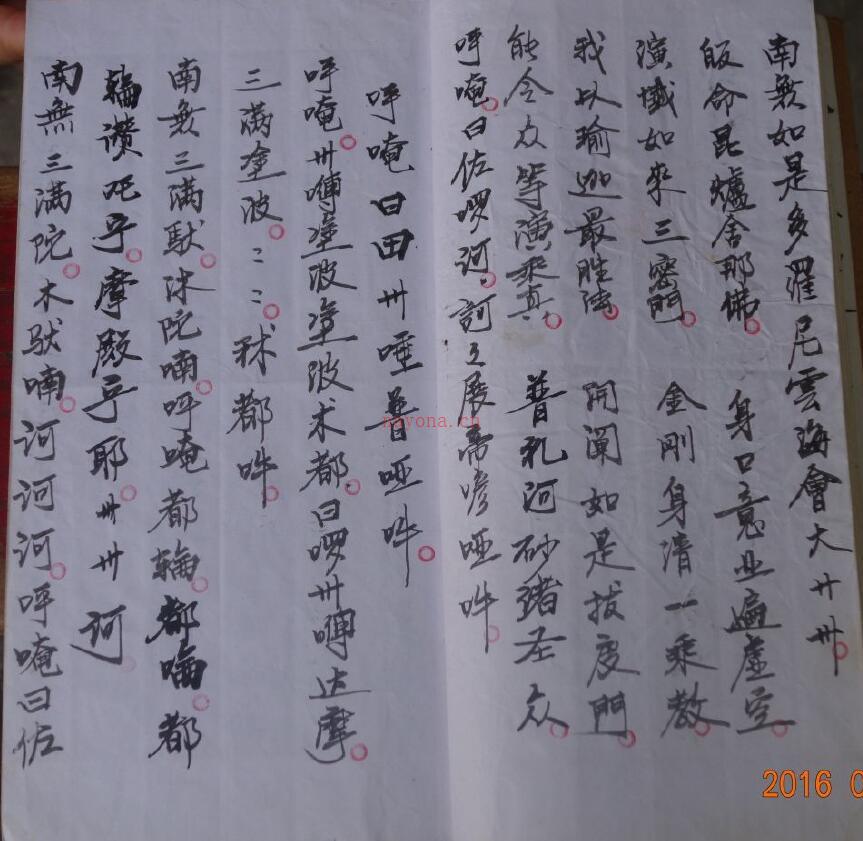 南無如是多羅尼雲海會大卅卅
皈命昆爐舍那佛 身口意业遍虚空
演懺如來三密門 金剛身清一乘教
我以瑜迦最胜法 開闡如是拔度門
能令众等演乘真 普礼河砂諸圣众
呼唵曰佐啰河訶
呼唵曰田卅唾普哑吽
呼唵卅嚩塗波塗波术都曰啰卅嚩达摩
三满塗波 秫都吽
南無三满馱沐陀喃呼唵都輪都喻都
輪讚死乎摩殿乎耶卅卅訶
南無三满陀木馱喃訶訶訶呼唵曰佐
nayona.cn
2016 0